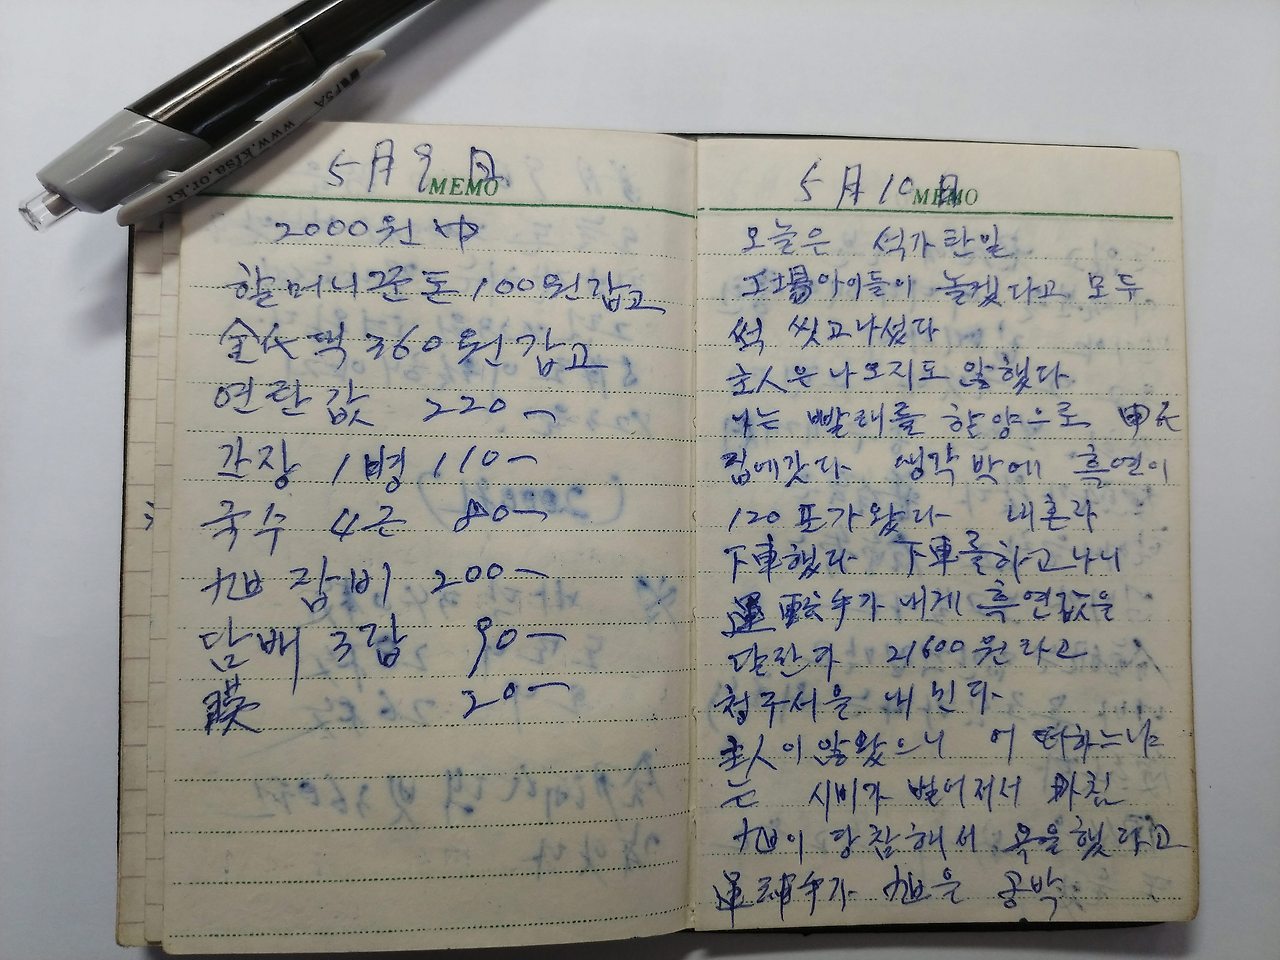 www.kfsa.or.kr
5月9日
MEMO
2000원 中
할머니 꾼돈 100원 갑고
金代댁 360원 갑고
연탄값 220-
간장 1병 110-
국수 4근 80-
旭 잡비 200-
담배 3갑 90-
20-
5月10日
MEMO
오늘은 석가탄일
工場아이들이 놀겠다고 모두
썩 씻고 나섰다
主人은 나오지도 않했다
나는 빨래를 할양으로
집에갔다 생각밖에 흑연이
120포가 왔다 내혼라
下車했다 下車를하고나니
運転手가 내게 흑연값을
달란다 21600원라고
청구서을 내 민다
主人이 않왔으니 어떠하느냐
는 시비가 벌어저서 마침
旭이 당참해서 욕을했다고
運転手가 旭은 공박